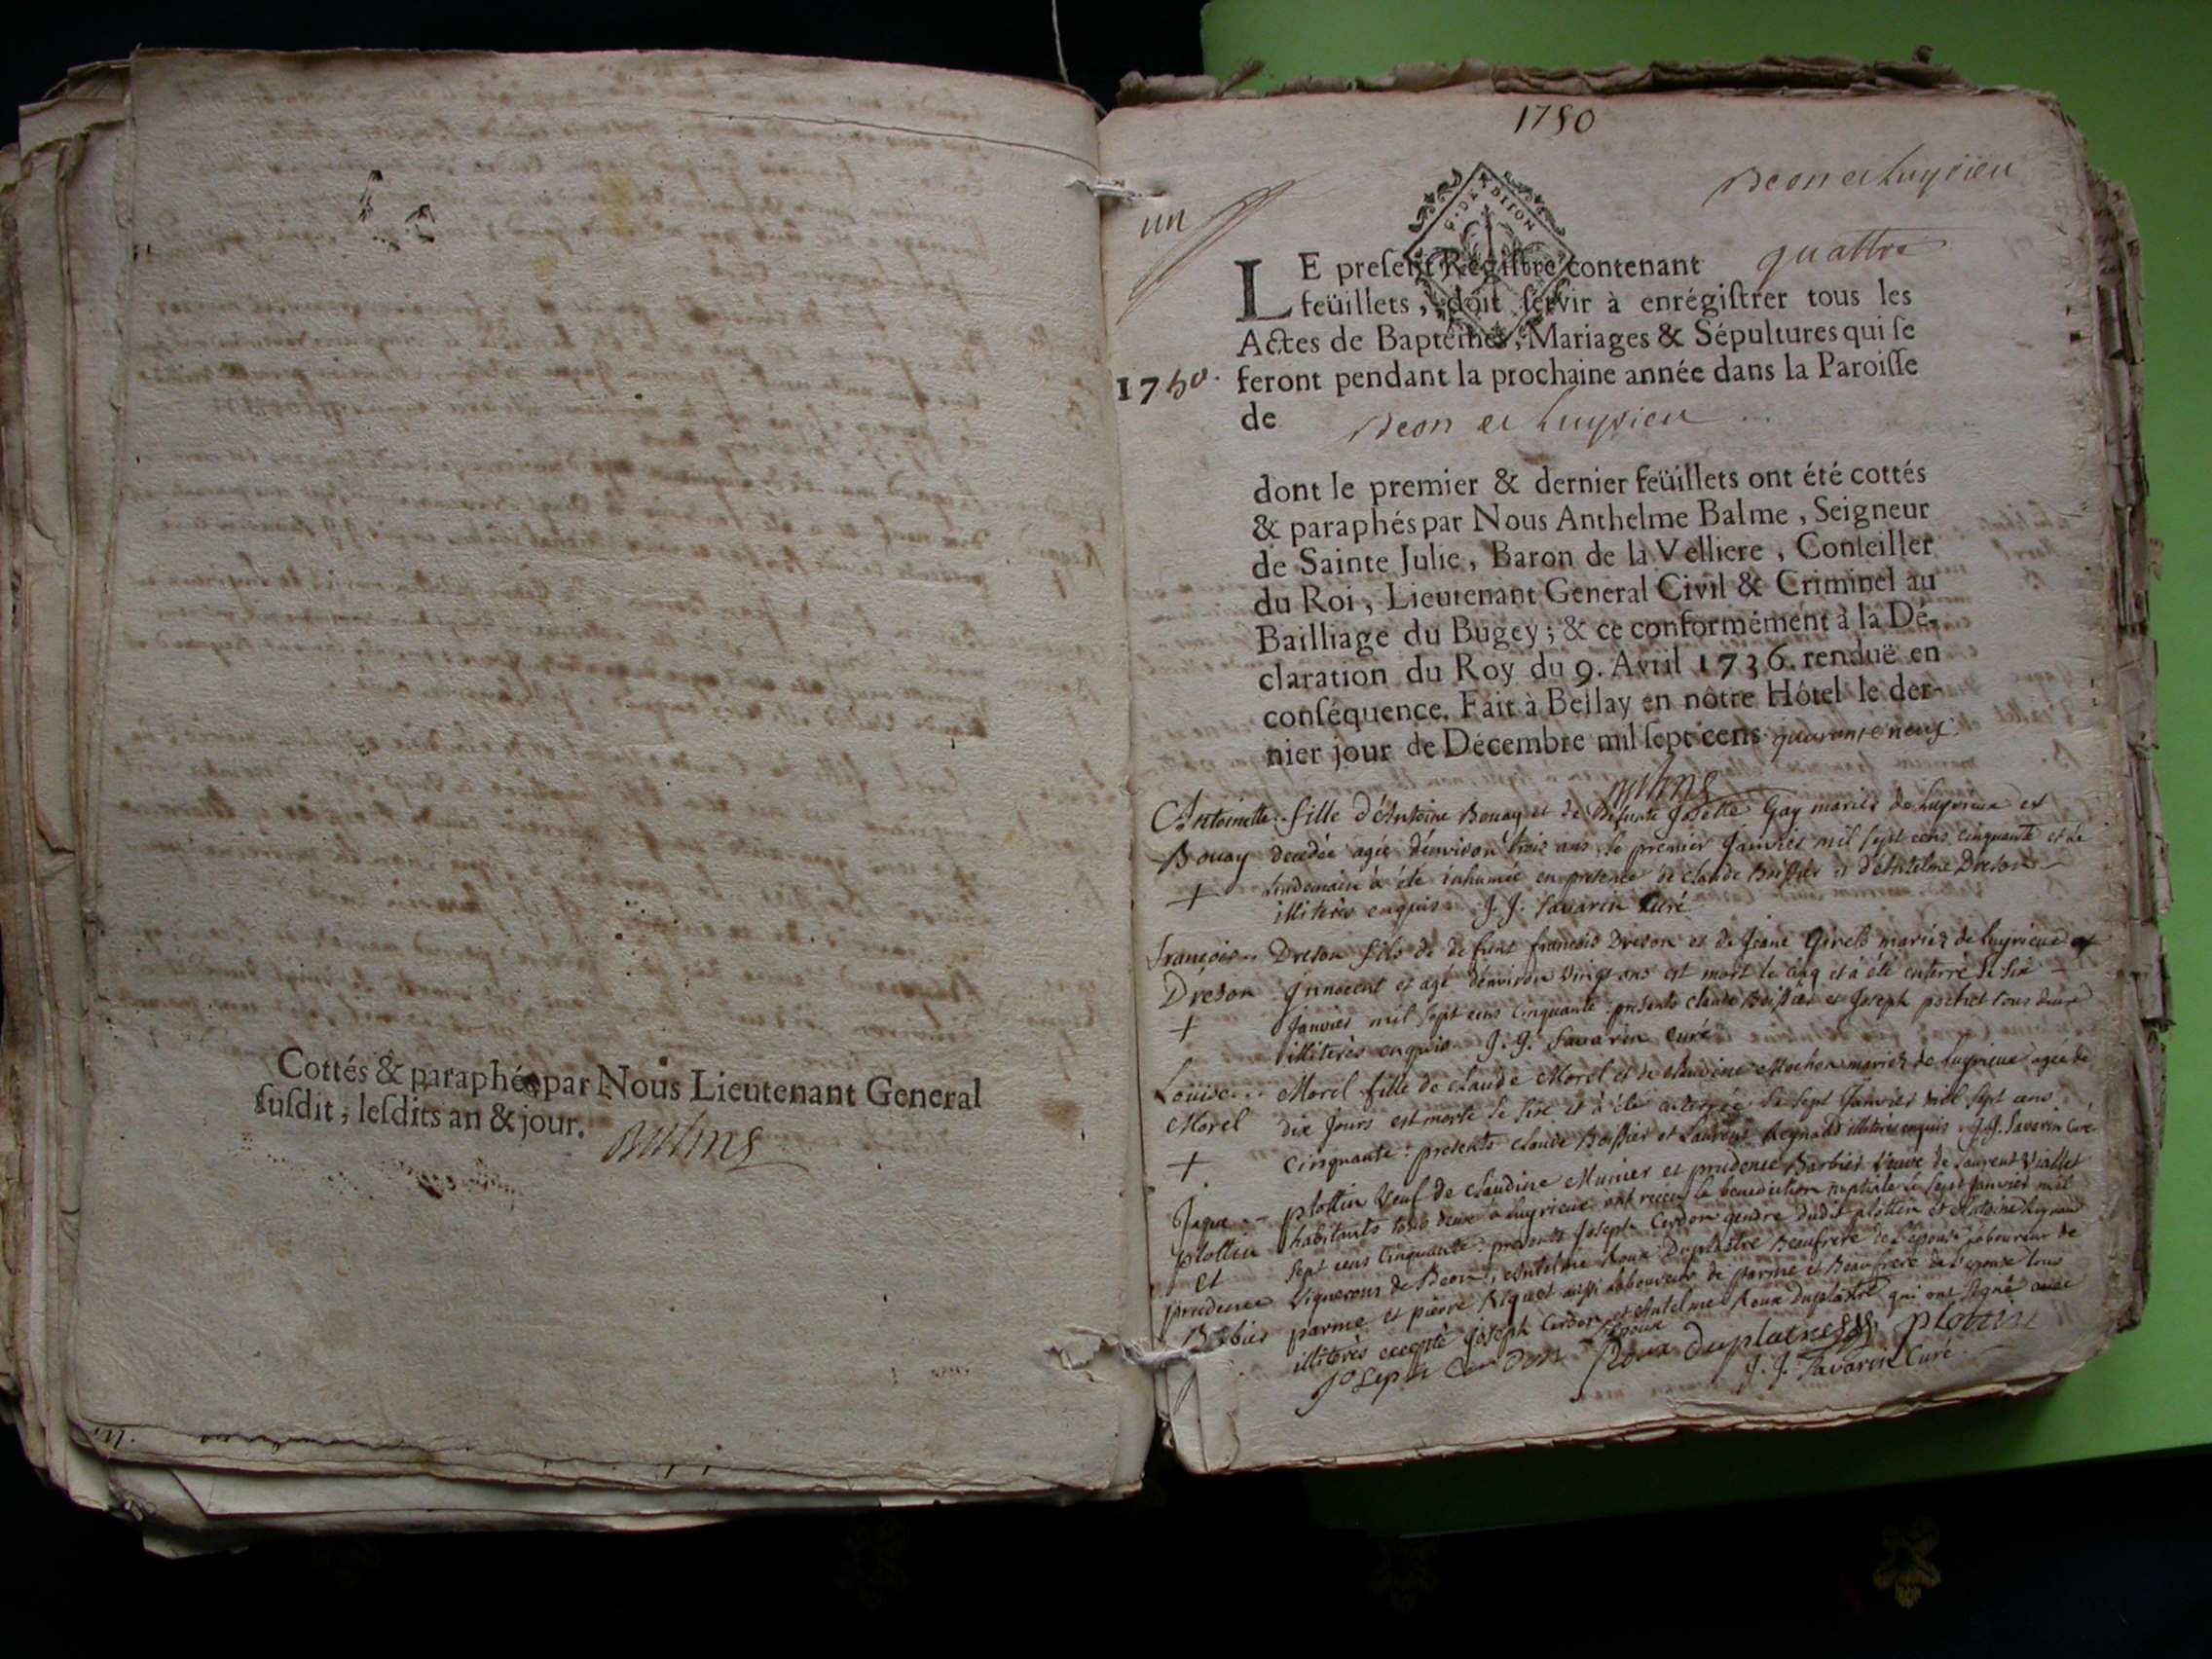 Cottés & paraphés par Nous Lieutenant General
ſuſdit, leſdits an & jour.
Balme
1750
Beon et Luyrieu
un
G. DE DIJON
LE preſent Regiſtre contenant quattre
feüillets, doit ſervir à enrégiſtrer tous les
Actes de Baptêmes, Mariages & Sépultures qui ſe
1750. feront pendant la prochaine année dans la Paroiſſe
de Beon et Luyrieu
dont le premier & dernier feüillets ont été cottés
& paraphés par Nous Anthelme Balme, Seigneur
de Sainte Julie, Baron de la Velliere, Conſeiller
du Roi, Lieutenant General Civil & Criminel au
Bailliage du Bugey; & ce conformément à la Dé-
claration du Roy du 9. Avril 1736. renduë en
conſéquence. Fait à Bellay en nôtre Hôtel le der-
nier jour de Décembre mil ſept cens quarante neuf.
Balme
Antoinette fille d'Antoine Bouay et de Defunte Josette Gay mariés de Luyrieux est
Bouay decedée agée d'environ trois ans le premier Janvier mil sept cens cinquante et le
+ lendemain a été inhumée en presence de Claude Boissier et d'Antelme Dreson
illiterès enquis. J. J. Savarin Curé
François Dreson fils de defunt francois Dreson et de Jeane mariéz de Luyrieux
Dreson Innocent et agé d'environ vingt ans est mort le cinq et a été enterré le six
+ Janvier mil sept cens cinquante presents Claude Boissier et Joseph pochet tous deux
illiterès enquis. J. J. Savarin Curé
Louise Morel fille de Claude Morel et de Claudine Mochon mariéz de Luyrieux agée de
Morel dix Jours est morte le six et a été enterrée le sept Janvier mil sept cens
+ Cinquante: presents Claude Boissier et Laurent Reynaud illiterès enquis. J. J. Savarin Curé
Jaque plottin Veuf de Claudine Munier et prudence Barbier Veuve de Laurent Viallet
plottin habitants tous deux a Luyrieux ont receu la benediction nuptiale le sept Janvier mil
et sept cens Cinquante: presents Joseph Cerdon gendre dudit plottin et Antoine
prudence Vignerons de Beon, Antelme Roux Duplastre Beaufrere de l'epouse laboureur de
Barbier parme et pierre Riquet aussi laboureur de parme et Beaufrere de l'epouse tous
illiterès excepté Joseph Cerdon et Antelme Roux Duplastre qui ont signé avec
epoux
Joseph Cerdon Roux Duplatre plotin
J. J. Savarin Curé.